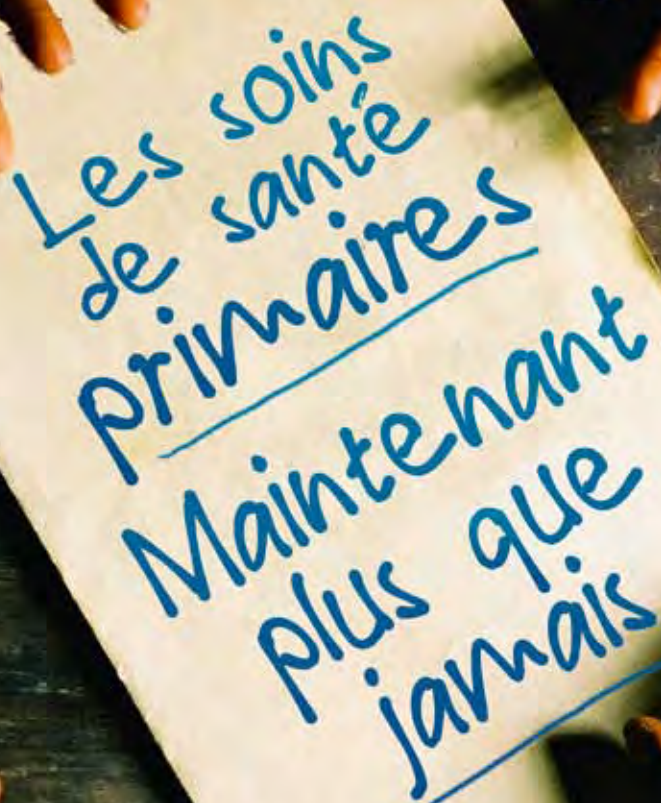 Les soins
de santé
primaires
Maintenant
plus que
jamais